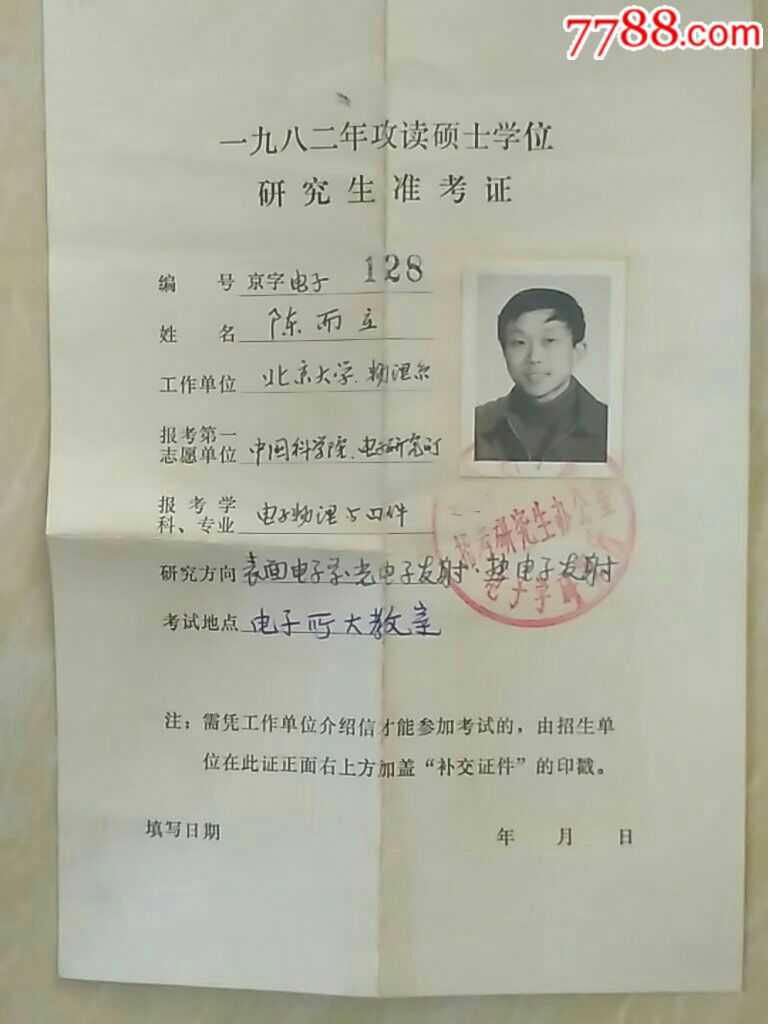 7788.com
一九八二年攻读硕士学位
研究生准考证
编号 京字电子 128
姓名 陈而立
工作单位 北京大学.物理系
报考第一
志愿单位 中国科学院.电子研究所
报考学
科、专业 电子物理与口件
研究方向 表面电子学.光电子发射.热电子发射
考试地点 电子所大教室
招考研究生办公室
电子学
注：需凭工作单位介绍信才能参加考试的，由招生单
位在此证正面右上方加盖“补交证件”的印戳。
填写日期 年 月 日